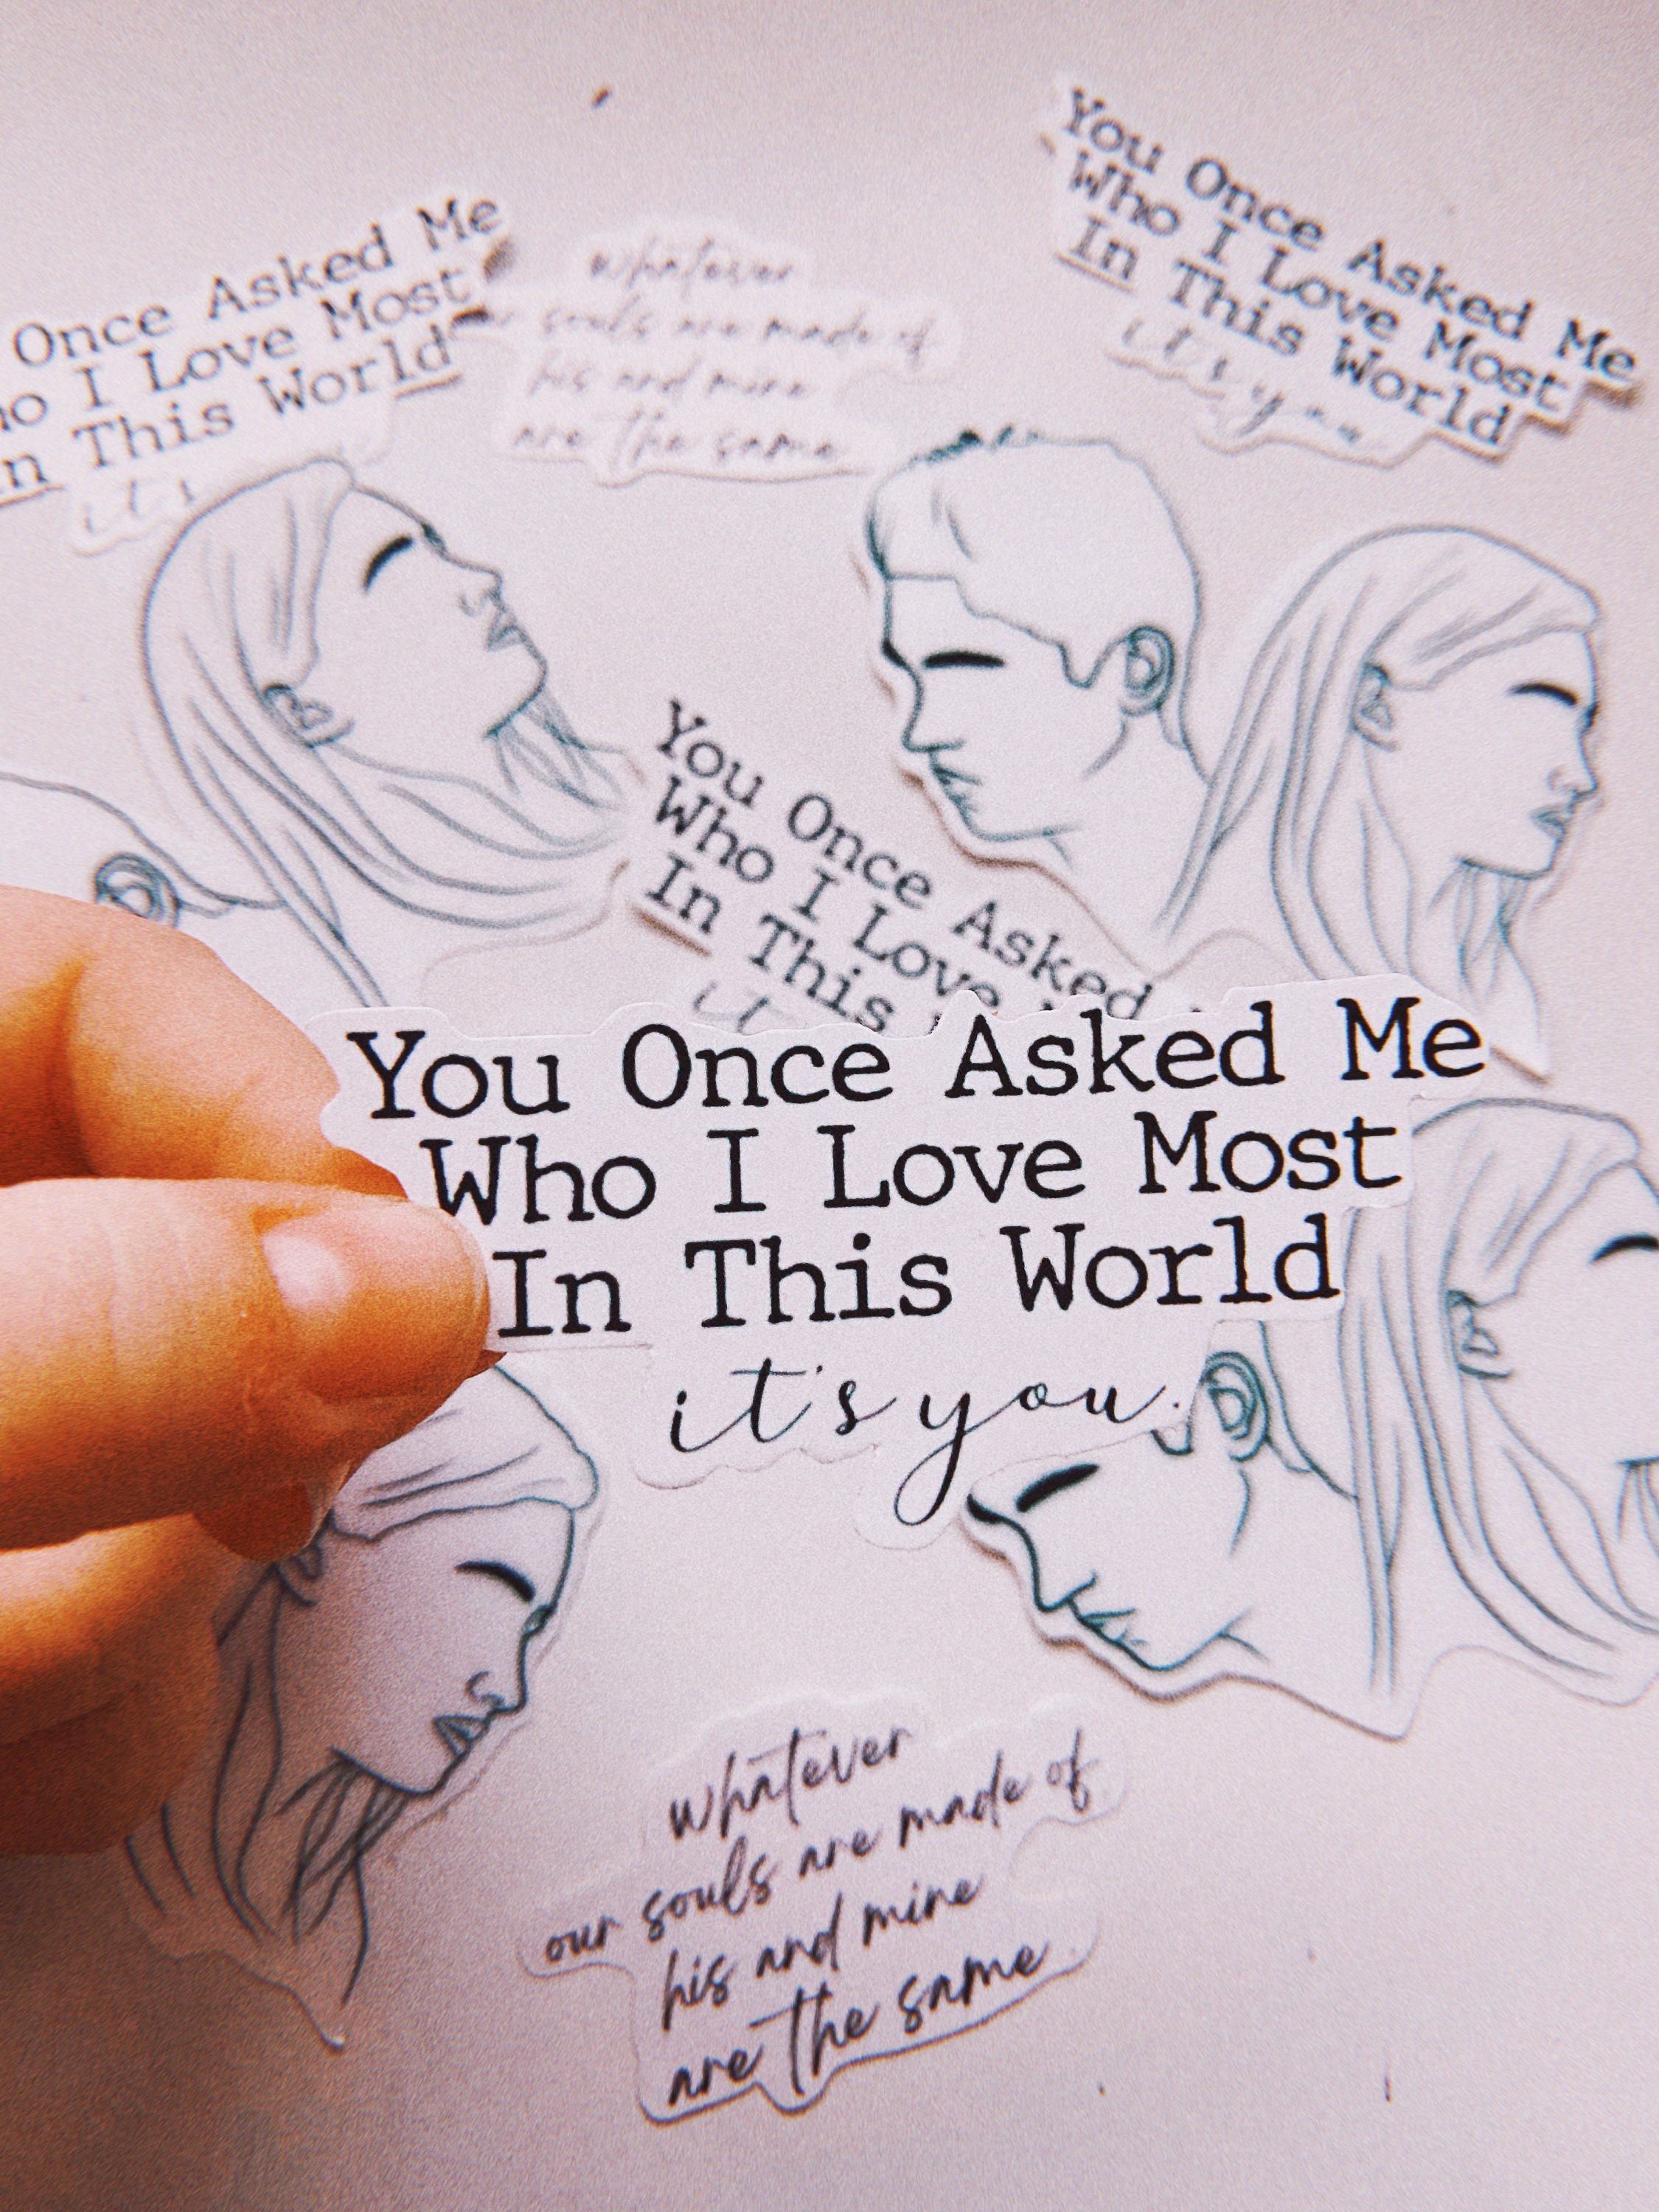 You Once Asked Me
Who I Love Most
In This World
it's you
Once Asked Me
I Love Most
This World
whatever
souls are made of
his and mine
are the same
You Once Asked
Who I Love
In This
You Once Asked Me
Who I Love Most
In This World
it's you.
whatever
our souls are made of
his and mine
are the same.